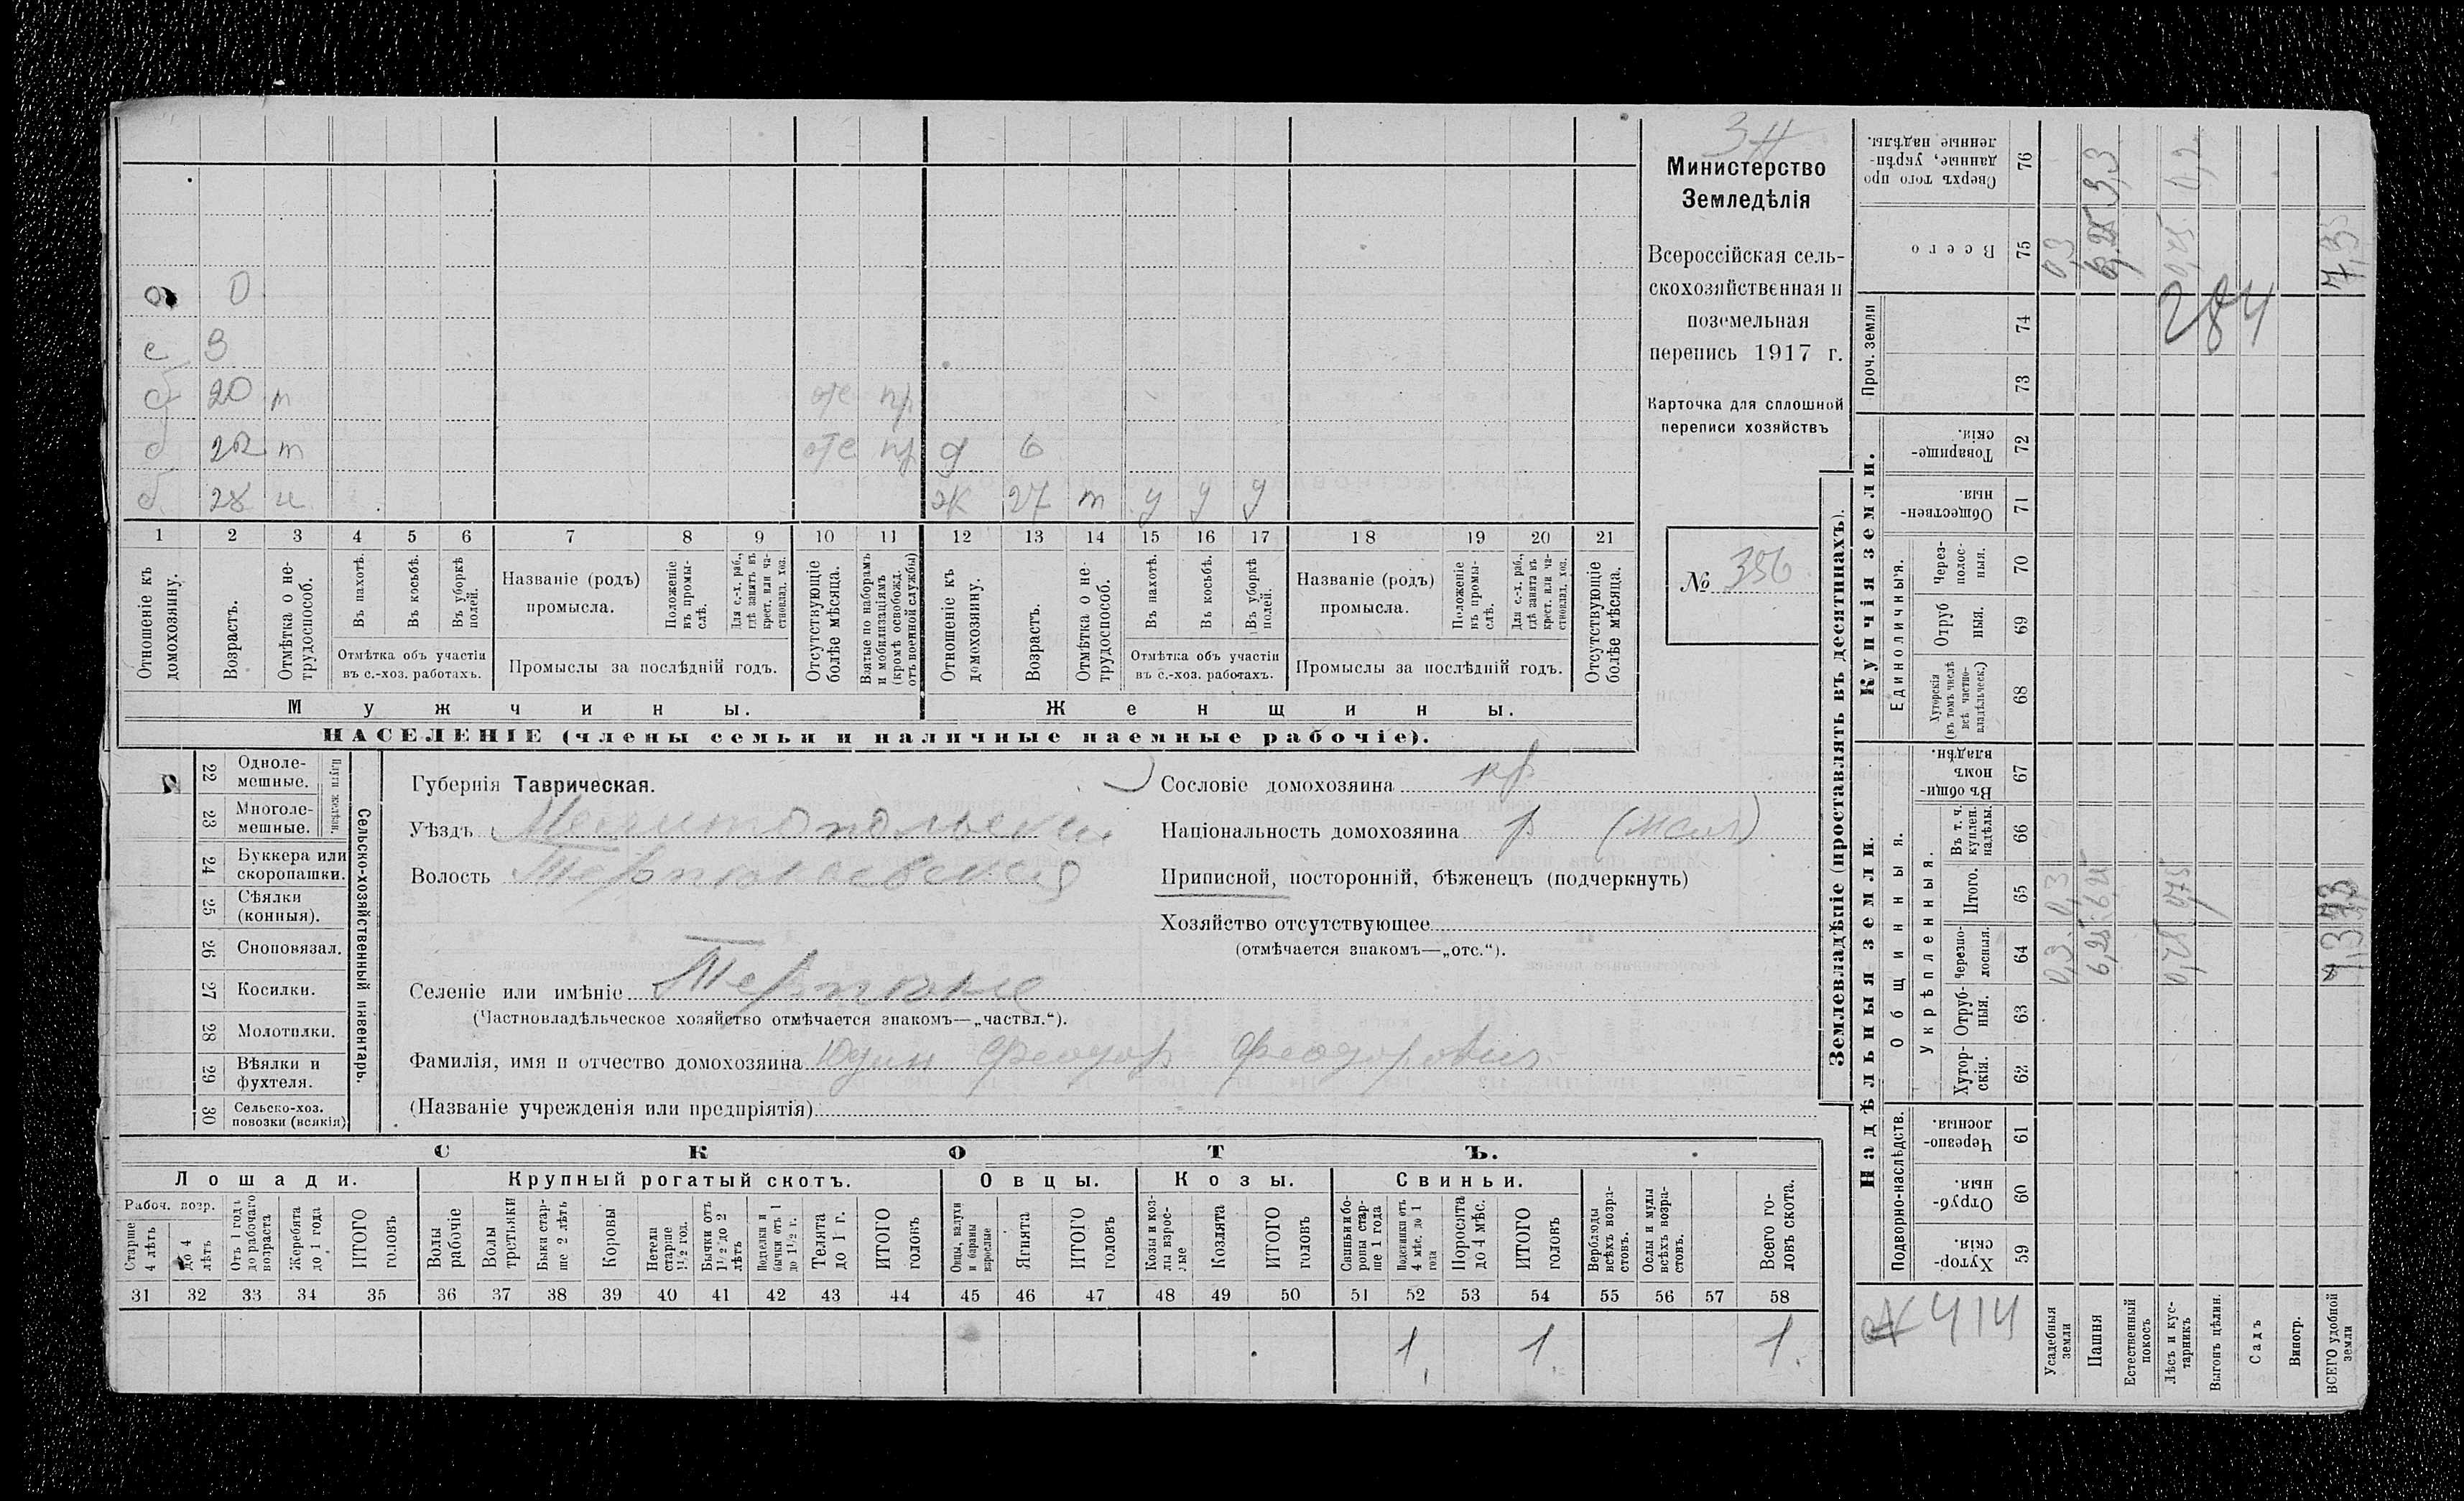 3Н
Министерство
Земледѣлія
Всероссійская сель-
скохозяйственная и
поземельная
перепись 1917 г.
Карточка для сплошной
переписи хозяйствъ
№ 356
0
с 3
б 20 т отс пр.
б 22 т отс пр д 6
б. 28 и. ж 27 т у у у
1 2 3 4 5 6 7 8 9 10 11 12 13 14 15 16 17 18 19 20 21
Отношеніе къ домохозяину.
Возрастъ.
Отмѣтка о не-трудоспособ.
Въ пахотѣ.
Въ косьбѣ.
Въ уборкѣ полей.
Отмѣтка объ участіи
въ с.-хоз. работахъ.
Названіе (родъ)
промысла.
Положеніе въ промы-слѣ.
Для с.-х. раб., гдѣ занятъ въ крест. или ча-стновлад. хоз.
Промыслы за послѣдній годъ.
Отсутствующіе болѣе мѣсяца.
Взятые по наборамъ и мобилизаціямъ (кромѣ освобожд. отъ военной службы)
Отношеніе къ домохозяину.
Возрастъ.
Отмѣтка о не-трудоспособ.
Въ пахотѣ.
Въ косьбѣ.
Въ уборкѣ полей.
Отмѣтка объ участіи
въ с.-хоз. работахъ.
Названіе (родъ)
промысла.
Положеніе въ промы-слѣ.
Для с.-х. раб., гдѣ занята въ крест. или ча-стновлад. хоз.
Промыслы за послѣдній годъ.
Отсутствующіе болѣе мѣсяца.
Мужчины. Женщины.
НАСЕЛЕНІЕ (члены семьи и наличные наемные рабочіе).
22 Одноле-мешные.
23 Многоле-мешные.
Плуги желѣзн.
24 Буккера или скоропашки.
25 Сѣялки (конныя).
26 Сноповязал.
27 Косилки.
28 Молотилки.
29 Вѣялки и фухтеля.
30 Сельско-хоз. повозки (всякія)
Сельско-хозяйственный инвентарь.
Губернія Таврическая.
Уѣздъ Мелитопольскій
Волость Терпѣніевская
Сословіе домохозяина кр
Національность домохозяина р
Приписной, посторонній, бѣженецъ (подчеркнуть)
Хозяйство отсутствующее
(отмѣчается знакомъ—„отс.“).
Селеніе или имѣніе Терпѣніе
(Частновладѣльческое хозяйство отмѣчается знакомъ—„частвл.“).
Фамилія, имя и отчество домохозяина Юдин Феодор Феодорович
(Названіе учрежденія или предпріятія)
СКОТЪ.
Лошади. Крупный рогатый скотъ. Овцы. Козы. Свиньи.
Рабоч. возр.
Старше 4 лѣтъ
до 4 лѣтъ
Отъ 1 года до рабочаго возраста
Жеребята до 1 года
ИТОГО головъ
Волы рабочіе
Волы третьяки
Быки стар-ше 2 лѣтъ
Коровы
Нетели старше 1½ год.
Бычки отъ 1½ до 2 лѣтъ
Подтелки и бычки отъ 1 до 1½ г.
Телята до 1 г.
ИТОГО головъ
Овцы, валухи и бараны взрослые
Ягнята
ИТОГО головъ
Козы и коз-лы взрос-лые
Козлята
ИТОГО головъ
Свиньи и бо-ровы стар-ше 1 года
Подсвинки отъ 4 мѣс. до 1 года
Поросята до 4 мѣс.
ИТОГО головъ
Верблюды всѣхъ возра-стовъ.
Ослы и мулы всѣхъ возра-стовъ.
Всего го-ловъ скота.
31 32 33 34 35 36 37 38 39 40 41 42 43 44 45 46 47 48 49 50 51 52 53 54 55 56 57 58
1. 1. 1.
Землевладѣніе (проставлять въ десятинахъ).
Надѣльныя земли. Купчія земли. Проч. земли
Подворно-наслѣдств.
Общинныя.
Укрѣпленныя.
Единоличныя.
Сверхъ того про-данные, укрѣп-ленные надѣлы. 76
Всего 75
74
73
Товарище-скія. 72
Обществен-ныя. 71
Через-полос-ныя. 70
Отруб-ныя. 69
Хуторскія (въ томъ числѣ всѣ частно-владѣльческ.) 68
Въ общи-номъ владѣн. 67
Въ т. ч. куплен. надѣлы. 66
Итого. 65
Черезпо-лосныя. 64
Отруб-ныя. 63
Хутор-скія. 62
Черезпо-лосныя. 61
Отруб-ныя. 60
Хутор-скія. 59
Усадебныя земли 0,3 0,3 0,3
Пашня 6,25 6,25 3,3
Естественный покосъ
Лѣсъ и кус-тарникъ 0,2
Выгонъ цѣлин.
Садъ
Виногр.
ВСЕГО удобной земли
284
414